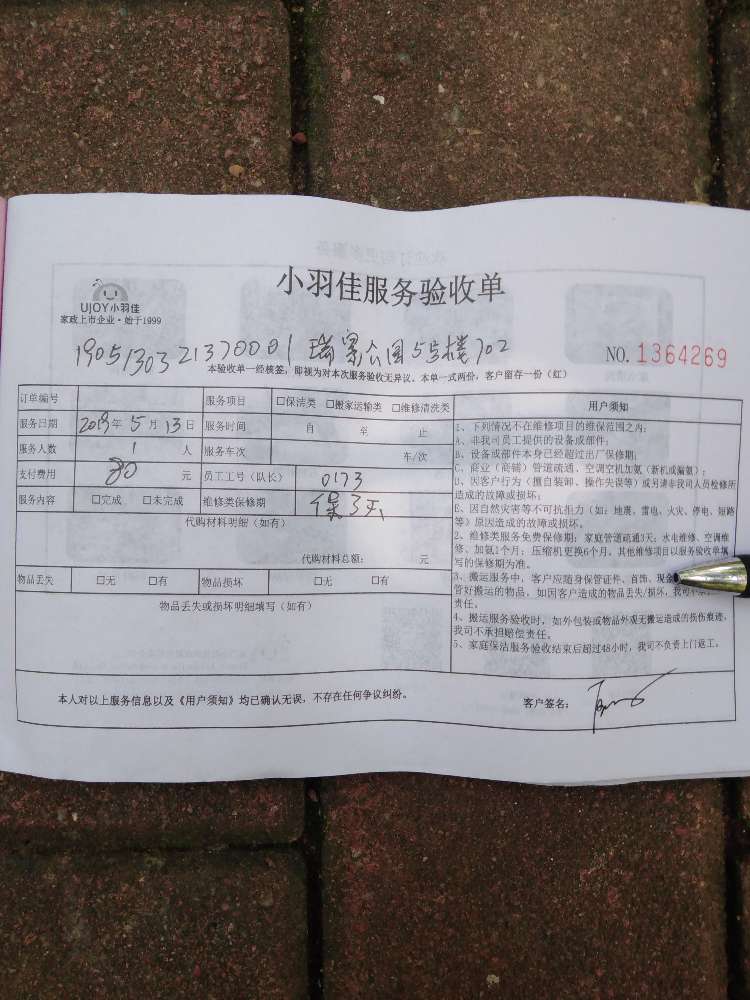 小羽佳服务验收单
UJOY小羽佳
家政上市企业·始于1999
1905130321370001 瑞景公园5号楼702
NO. 1364269
本验收单一经核签，即视为对本次服务验收无异议。本单一式两份，客户留存一份（红）
订单编号 服务项目 □保洁类 □搬家运输类 □维修清洗类
服务日期 2019年 5 月 13 日 服务时间 自 至 止
服务人数 1 人 服务车次 车/次
支付费用 80 元 员工工号（队长） 0173
服务内容 □完成 □未完成 维修类保修期 保3天
代购材料明细（如有）
代购材料总额： 元
物品丢失 □无 □有 物品损坏 □无 □有
物品丢失或损坏明细填写（如有）
用户须知
1、下列情况不在维修项目的维保范围之内：
A、非我司员工提供的设备或部件；
B、设备或部件本身已经超过出厂保修期；
C、商业（商铺）管道疏通、空调空机加氟（新机或漏氟）；
D、因客户行为（擅自装卸、操作失误等）或另请非我司人员检修所
造成的故障或损坏；
E、因自然灾害等不可抗拒力（如：地震、雷电、火灾、停电、短路
等）原因造成的故障或损坏。
2、维修类服务免费保修期：家庭管道疏通3天；水电维修、空调维
修、加氟1个月；压缩机更换6个月，其他维修项目以服务验收单填
写的保修期为准。
3、搬运服务中，客户应随身保管证件、首饰、现金
管好搬运的物品，如因客户造成的物品丢失/损坏，我司不承
责任。
4、搬运服务验收时，如外包装或物品外观无搬运造成的损伤痕迹，
我司不承担赔偿责任。
5、家庭保洁服务验收结束后超过48小时，我司不负责上门返工。
本人对以上服务信息以及《用户须知》均已确认无误，不存在任何争议纠纷。
客户签名：